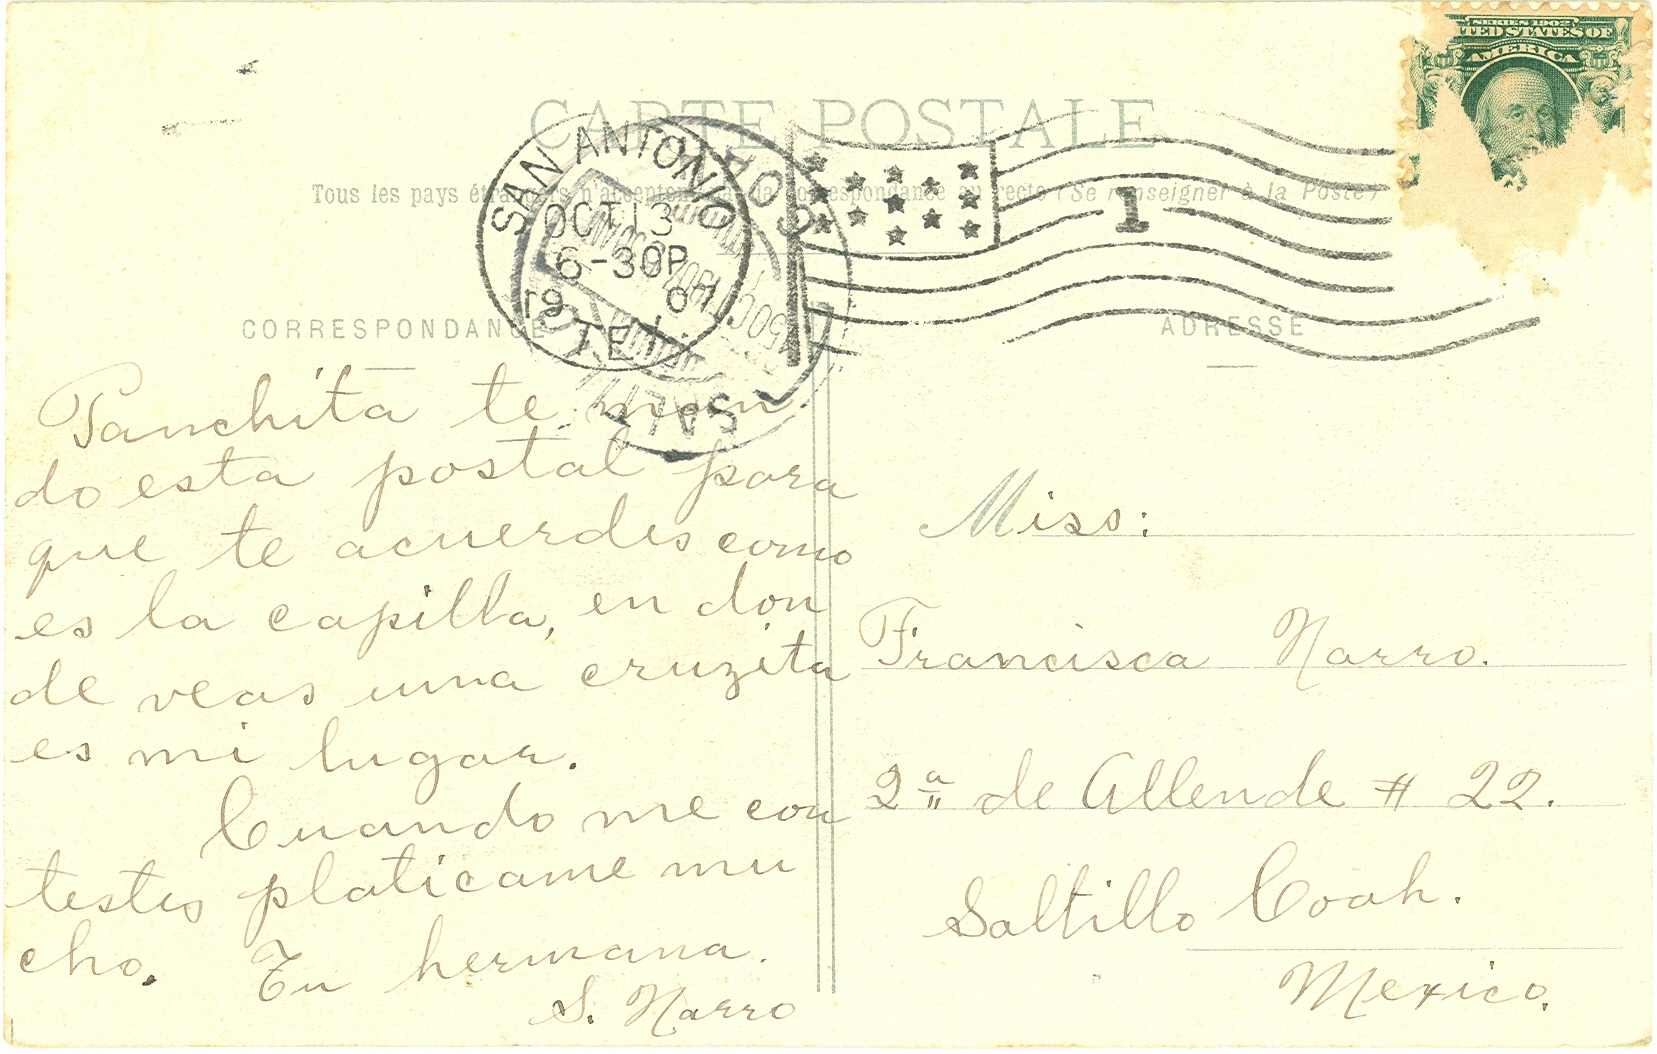 SERIES 1902
UNITED STATES OF
AMERICA
CARTE POSTALE
Tous les pays étrangers n'acceptent pas la correspondance au recto (Se renseigner à la Poste)
SAN ANTONIO
OCT 13
6-30P
19 07
TEX
1
15 OCT 1907
SALTILLO
CORRESPONDANCE
ADRESSE
Panchita te man
do esta postal para
que te acuerdes como
es la capilla, en don
de veas una cruzita
es mi lugar.
Cuando me con
testes platicame mu
cho. Tu hermana.
S. Narro
Miss:
Francisca Narro.
2ª de Allende # 22.
Saltillo Coah.
Mexico.